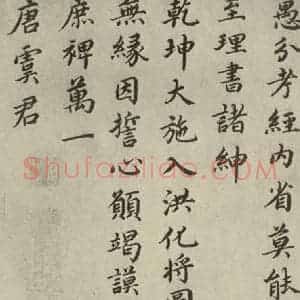 愚分考經內省莫能
至理書諸紳
乾坤大施入洪化將圖
無緣因誓心願竭謨
庶裨萬一
唐虞君
Shufaziliao.com